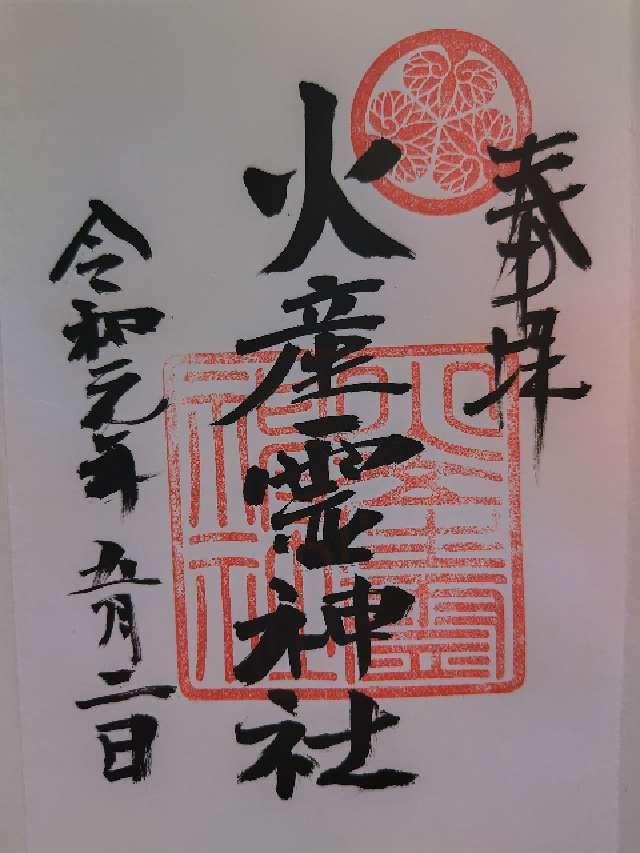 奉拝
火産霊神社
令和元年 五月二日
火産霊
神社